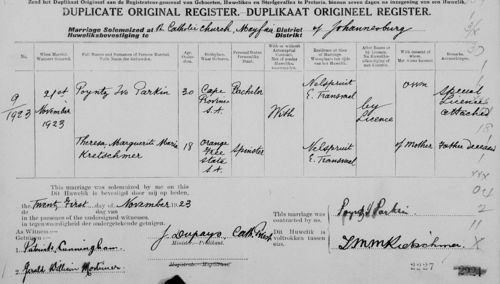 Zend het Duplikaat Origineel aan de Registrateur-generaal van Geboorten, Huweliken en Sterfgevallen te Pretoria, binnen zeven dagen na inzegening van een Huwelik.
DUPLICATE ORIGINAL REGISTER. DUPLIKAAT ORIGINEEL REGISTER.
Marriage Solemnized at R. Catholic Church, Mayfair District of Johannesburg
Huweliksbevestiging te Distrikt
No. When Married. Full Names and Surname of Persons Married. Age. Birthplace. Personal Status. With or without Antenuptial Contract. Residence at time of Marriage. After Banns or by Licence. With consent of whom. Remarks.
9/1923 21st November 1923 Poyntz Parkin 30 Cape Province S.A. Bachelor With Nelspruit E. Transvaal by Licence own Special Licence attached
Theresa Marguerite Maria Kretschmer 18 Orange Free State S.A. Spinster Nelspruit E. Transvaal of Mother Father deceased
This marriage was solemnized by me on this
Dit Huwelik is bevestigd door mij op heden,
the Twenty First day of November 1923
de dag van
in the presence of the undersigned witnesses,
in tegenwoordigheid der ondergetekende getuigen.
This marriage was contracted by us. Poyntz Parkin
Dit Huwelik is voltrokken tussen TMM Kretschmer
As Witness
Getuigen
1 Cunningham.
2 Gerald William Mortimer
Minister.—Predikant.
Magistrate.—Magistraat.
2227